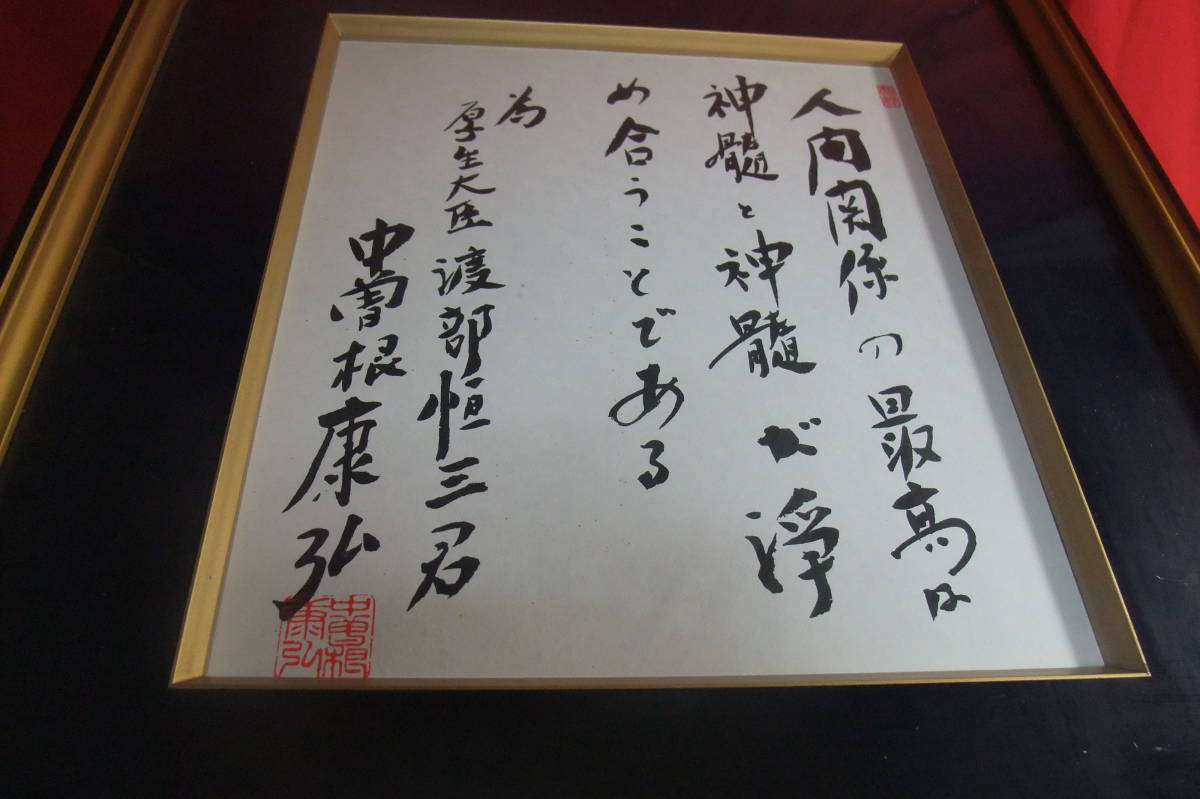 人間関係の最高は
神髄と神髄が浄
め合うことである
為
厚生大臣 渡部恒三君
中曽根康弘
中曽根
康弘